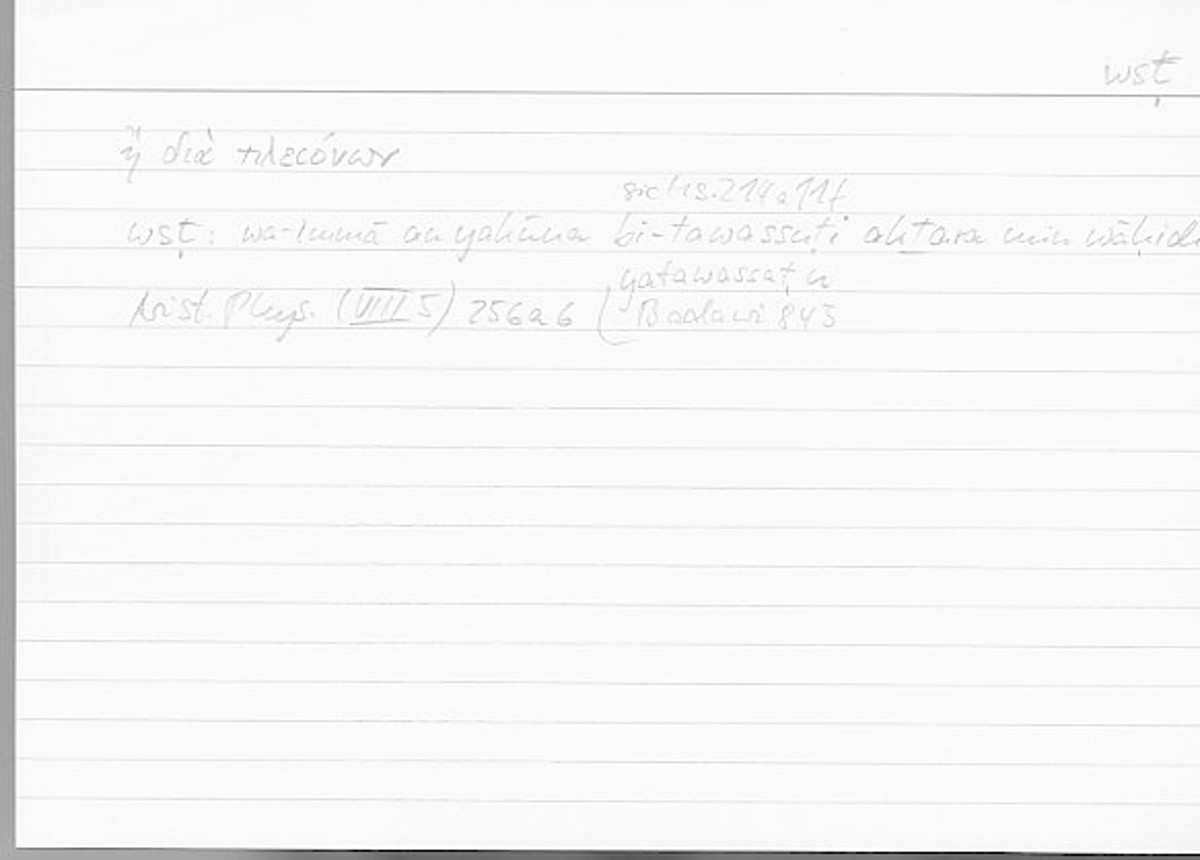 wsṭ
ἢ διὰ πλειόνων
sic Hs. 214a11f
wsṭ: wa-immā an yakūna bi-tawassuṭi akṯara min wāḥid
yatawassaṭu
Arist. Phys. (VIII 5) 256a6 ( Badawi 843